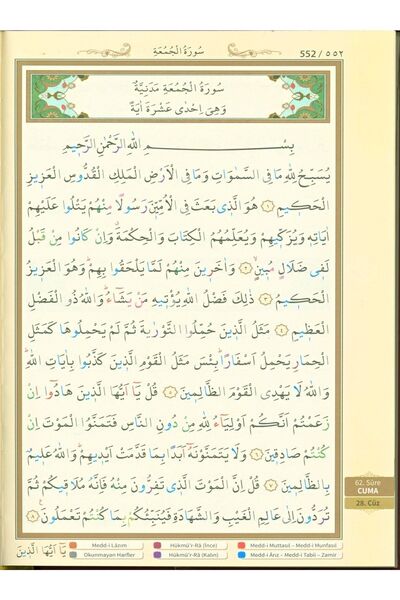 سُورَةُ الْجُمُعَةِ
552 / ٥٥٢
سُورَةُ الْجُمُعَةِ مَدَنِيَّةٌ
وَهِىَ اِحْدٰى عَشْرَةَ اٰيَةً
بِسْمِ اللّٰهِ الرَّحْمٰنِ الرَّحٖيمِ
يُسَبِّحُ لِلّٰهِ مَا فِى السَّمٰوَاتِ وَمَا فِى الْاَرْضِ الْمَلِكِ الْقُدُّوسِ الْعَزٖيزِ
الْحَكٖيمِ ﴿١﴾ هُوَ الَّذٖى بَعَثَ فِى الْاُمِّيّٖنَ رَسُولًا مِنْهُمْ يَتْلُوا عَلَيْهِمْ
اٰيَاتِهٖ وَيُزَكّٖيهِمْ وَيُعَلِّمُهُمُ الْكِتَابَ وَالْحِكْمَةَ وَاِنْ كَانُوا مِنْ قَبْلُ
لَفٖى ضَلَالٍ مُبٖينٍ ﴿٢﴾ وَاٰخَرٖينَ مِنْهُمْ لَمَّا يَلْحَقُوا بِهِمْ وَهُوَ الْعَزٖيزُ
الْحَكٖيمُ ﴿٣﴾ ذٰلِكَ فَضْلُ اللّٰهِ يُؤْتٖيهِ مَنْ يَشَاءُ وَاللّٰهُ ذُو الْفَضْلِ
الْعَظٖيمِ ﴿٤﴾ مَثَلُ الَّذٖينَ حُمِّلُوا التَّوْرٰيةَ ثُمَّ لَمْ يَحْمِلُوهَا كَمَثَلِ
الْحِمَارِ يَحْمِلُ اَسْفَارًا بِئْسَ مَثَلُ الْقَوْمِ الَّذٖينَ كَذَّبُوا بِاٰيَاتِ اللّٰهِ
وَاللّٰهُ لَا يَهْدِى الْقَوْمَ الظَّالِمٖينَ ﴿٥﴾ قُلْ يَا اَيُّهَا الَّذٖينَ هَادُوا اِنْ
زَعَمْتُمْ اَنَّكُمْ اَوْلِيَاءُ لِلّٰهِ مِنْ دُونِ النَّاسِ فَتَمَنَّوُا الْمَوْتَ اِنْ
كُنْتُمْ صَادِقٖينَ ﴿٦﴾ وَلَا يَتَمَنَّوْنَهُ اَبَدًا بِمَا قَدَّمَتْ اَيْدٖيهِمْ وَاللّٰهُ عَلٖيمٌ
بِالظَّالِمٖينَ ﴿٧﴾ قُلْ اِنَّ الْمَوْتَ الَّذٖى تَفِرُّونَ مِنْهُ فَاِنَّهُ مُلَاقٖيكُمْ ثُمَّ
تُرَدُّونَ اِلٰى عَالِمِ الْغَيْبِ وَالشَّهَادَةِ فَيُنَبِّئُكُمْ بِمَا كُنْتُمْ تَعْمَلُونَ ﴿٨﴾
62. Sûre
CUMA
28. Cüz
يَا اَيُّهَا الَّذٖينَ
Medd-i Lâzım
Hükmü'r-Râ (İnce)
Medd-i Muttasıl – Medd-i Munfasıl
Okunmayan Harfler
Hükmü'r-Râ (Kalın)
Medd-i Ârız – Medd-i Tabiî – Zamir